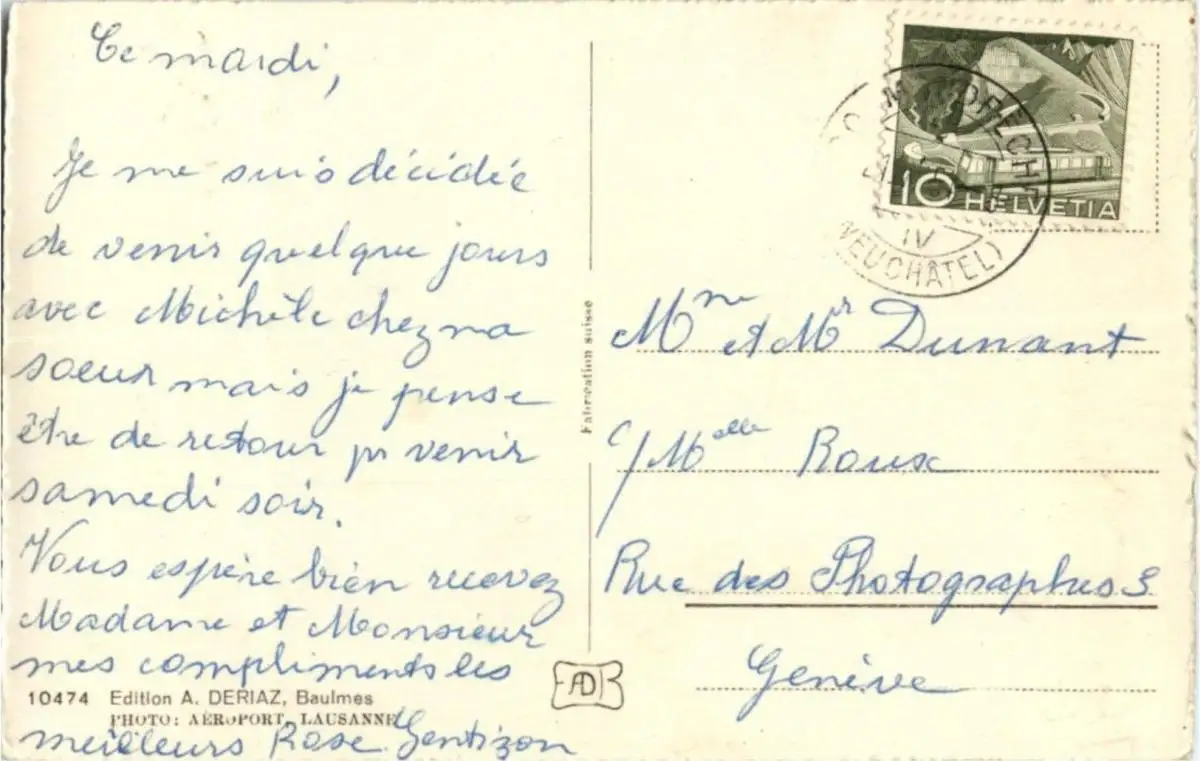 Ce mardi,
Je me suis décidée
de venir quelque jours
avec Michèle chez ma
soeur mais je pense
être de retour pr venir
samedi soir.
Vous espère bien recevez
Madame et Monsieur
mes compliments les
meilleurs Rose Gentizon
10474 Edition A. DERIAZ, Baulmes
PHOTO: AÉROPORT, LAUSANNE
Fabrication suisse
AD
10 HELVETIA
IV
(NEUCHÂTEL)
Mme et Mr Dunant
c/Melle Roux
Rue des Photographes
Genève